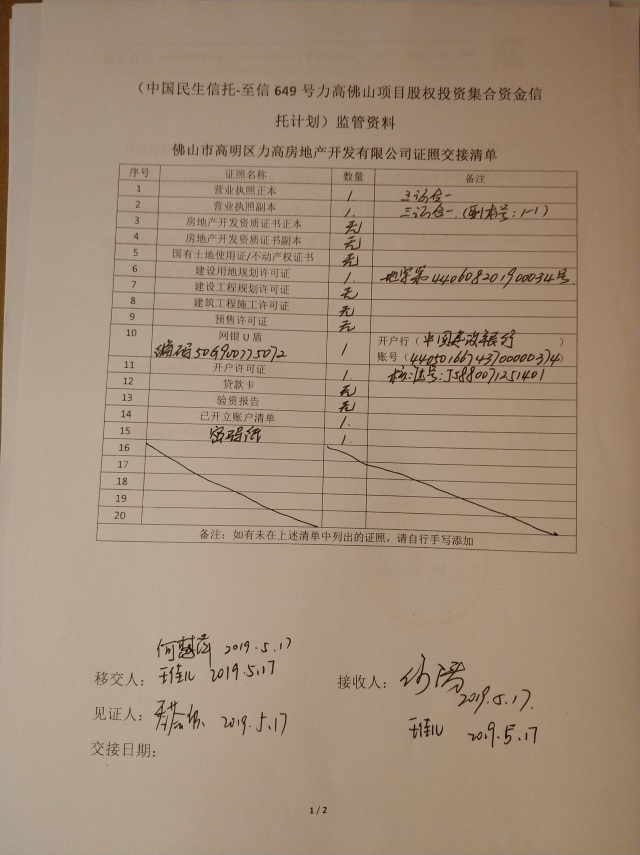 （中国民生信托-至信 649 号力高佛山项目股权投资集合资金信
托计划）监管资料
佛山市高明区力高房地产开发有限公司证照交接清单
序号 证照名称 数量 备注
1 营业执照正本 1. 三证合一
2 营业执照副本 1. 三证合一（副本号：1-1）
3 房地产开发资质证书正本 无
4 房地产开发资质证书副本 无
5 国有土地使用证/不动产权证书 无
6 建设用地规划许可证 1. 地字第440608201900034号
7 建设工程规划许可证 无
8 建筑工程施工许可证 无
9 预售许可证 无
10 网银 U 盾 1 开户行（中国建设银行）
编码506900775072 账号（44050166743700000374）
11 开户许可证 1. 核准号:J5880071251401
12 贷款卡 无
13 验资报告 无
14 已开立账户清单 1.
15 密码纸 1.
16
17
18
19
20
备注：如有未在上述清单中列出的证照，请自行手写添加
2019.5.17
移交人： 2019.5.17
接收人： 2019.5.17.
见证人： 2019.5.17
2019.5.17
交接日期：
1 / 2